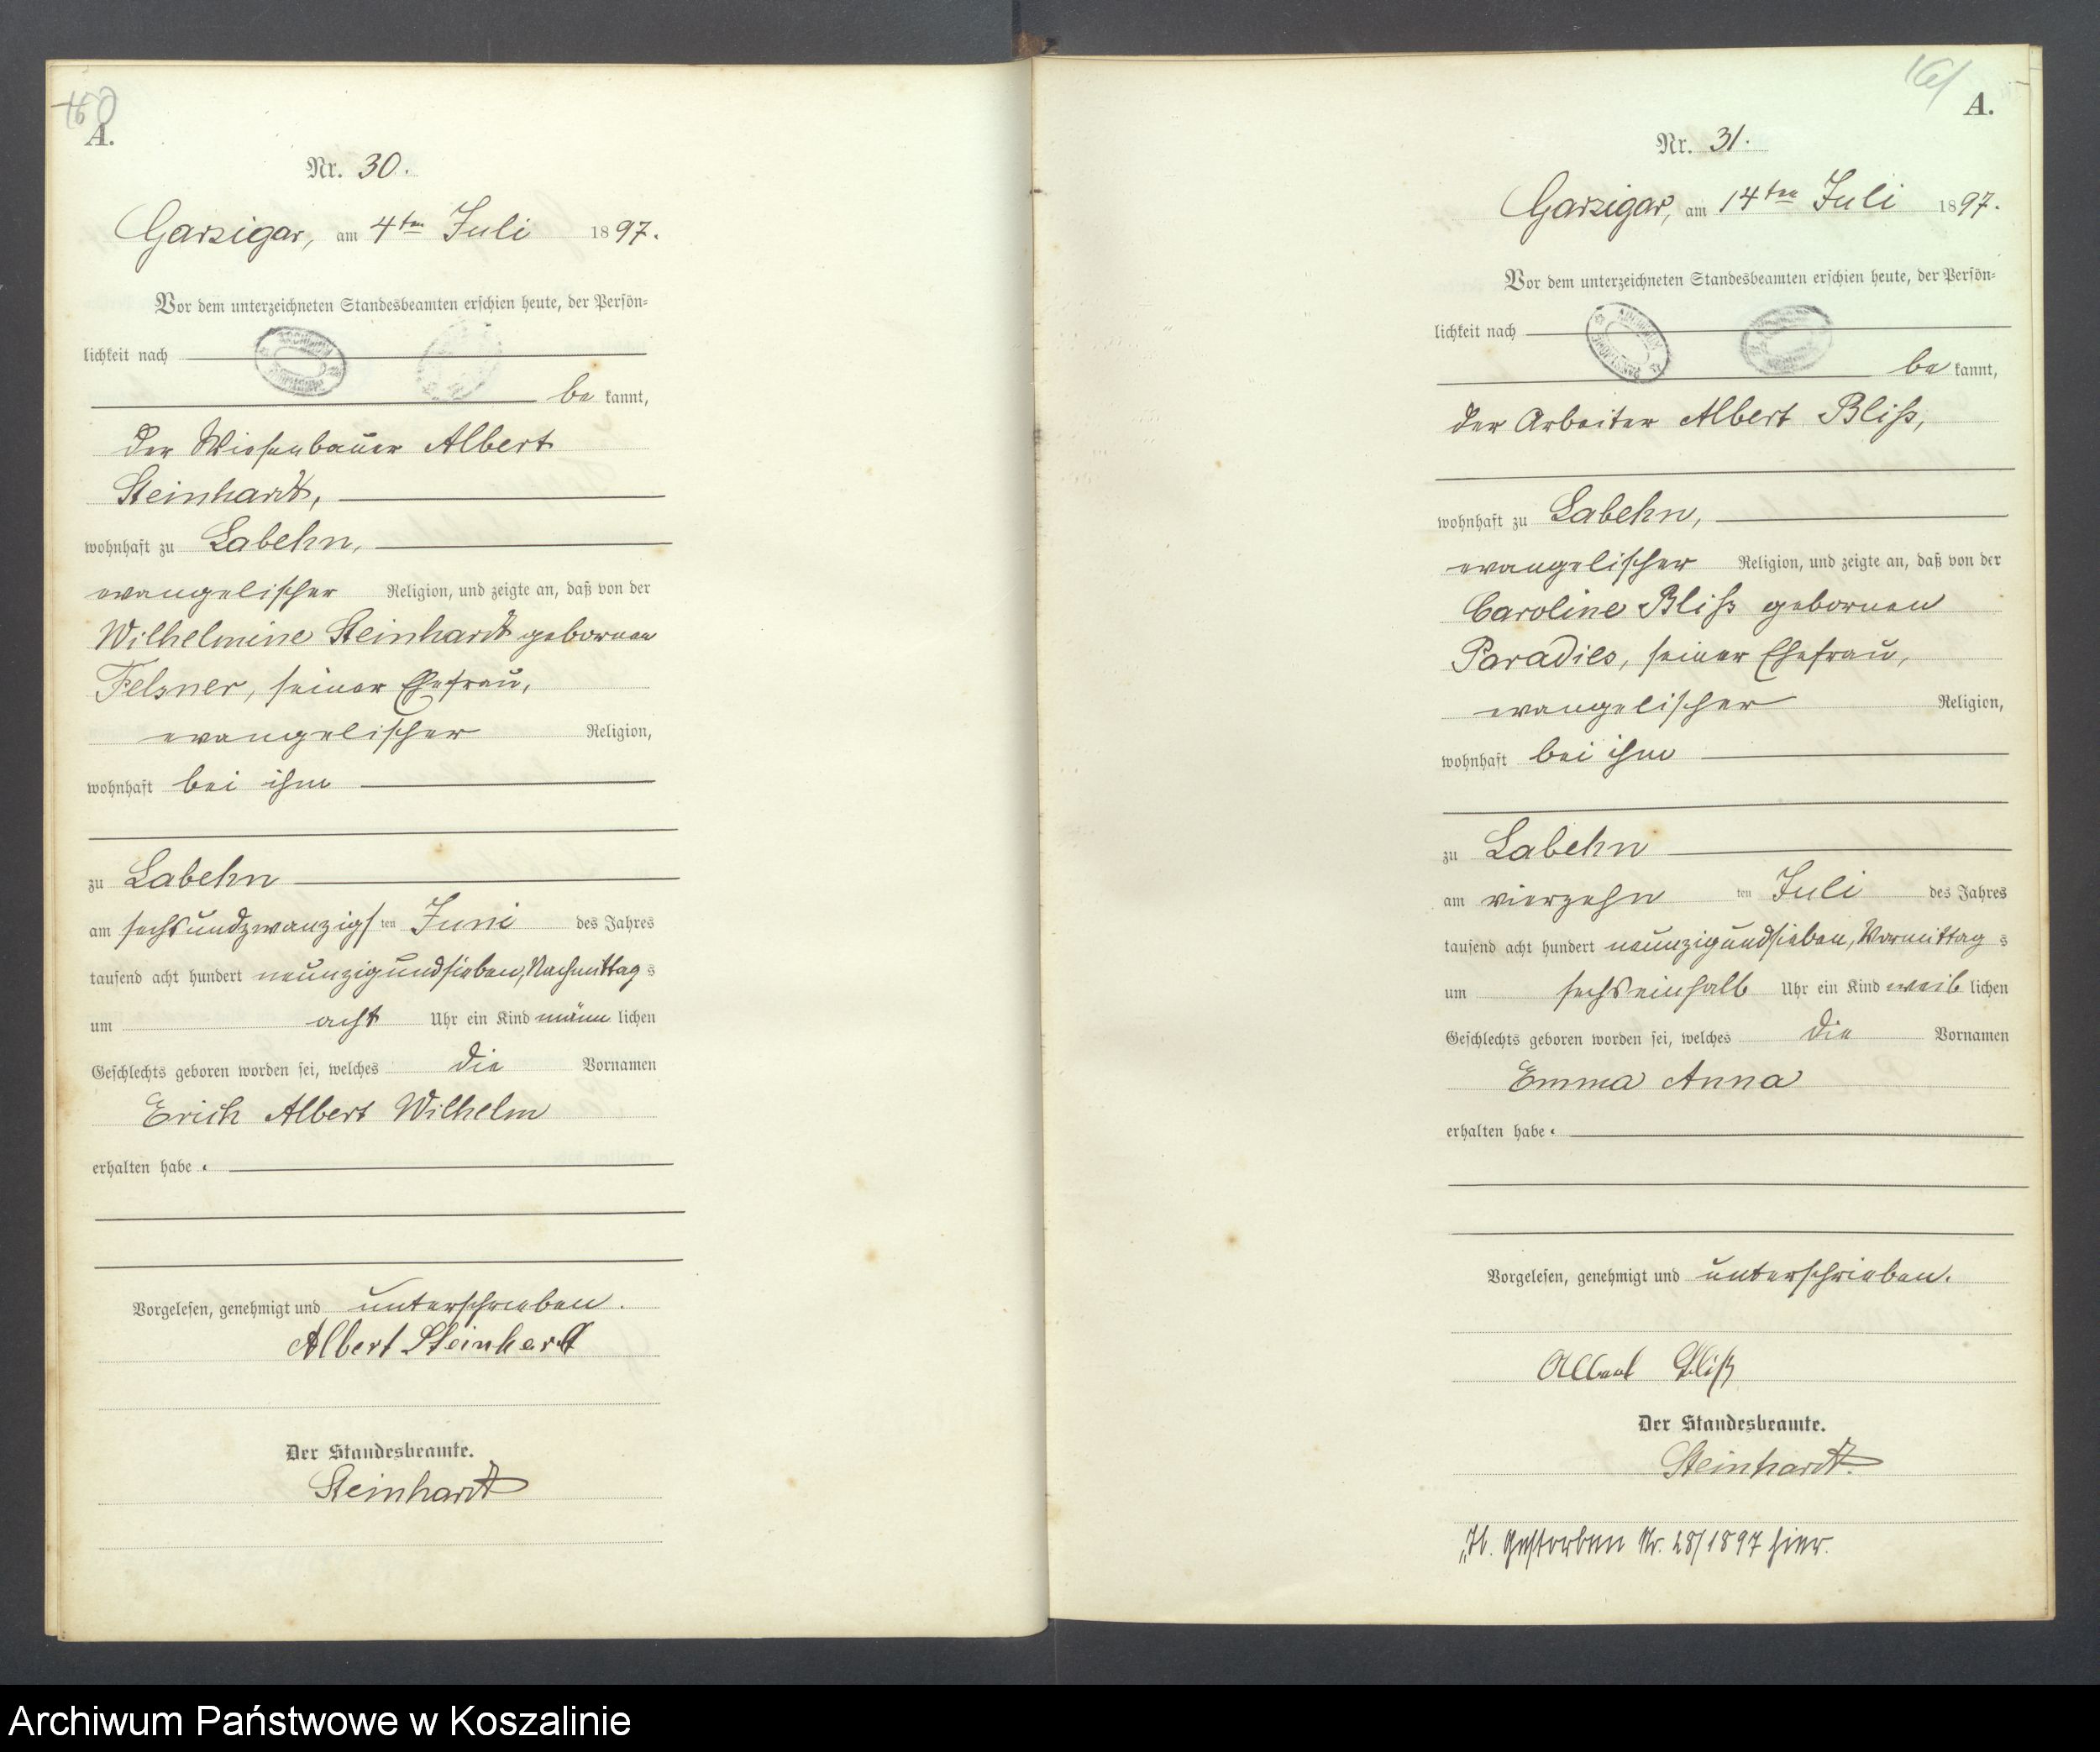 160
A.
Nr. 30.
Garzigar, am 4ten Juli 1897.
Vor dem unterzeichneten Standesbeamten erschien heute, der Persön-
lichkeit nach
be kannt,
der Wiesenbauer Albert
Steinhardt,
wohnhaft zu Labehn,
evangelischer Religion, und zeigte an, daß von der
Wilhelmine Steinhardt gebornen
Felsner, seiner Ehefrau,
evangelischer Religion,
wohnhaft bei ihm
zu Labehn
am sechsundzwanzigsten Juni des Jahres
tausend acht hundert neunzigundsieben, Nachmittags
um acht Uhr ein Kind männlichen
Geschlechts geboren worden sei, welches die Vornamen
Erich Albert Wilhelm
erhalten habe.
Vorgelesen, genehmigt und unterschrieben.
Albert Steinhardt
Der Standesbeamte.
Steinhardt
161
A.
Nr. 31.
Garzigar, am 14ten Juli 1897.
Vor dem unterzeichneten Standesbeamten erschien heute, der Persön-
lichkeit nach
be kannt,
der Arbeiter Albert Bliß,
wohnhaft zu Labehn,
evangelischer Religion, und zeigte an, daß von der
Caroline Bliß gebornen
Paradies, seiner Ehefrau,
evangelischer Religion,
wohnhaft bei ihm
zu Labehn
am vierzehn ten Juli des Jahres
tausend acht hundert neunzigundsieben, Vormittags
um sechseinhalb Uhr ein Kind weiblichen
Geschlechts geboren worden sei, welches die Vornamen
Emma Anna
erhalten habe.
Vorgelesen, genehmigt und unterschrieben.
Albert Bliß
Der Standesbeamte.
Steinhardt.
Gestorben Nr. 28/1897 hier.
Archiwum Państwowe w Koszalinie